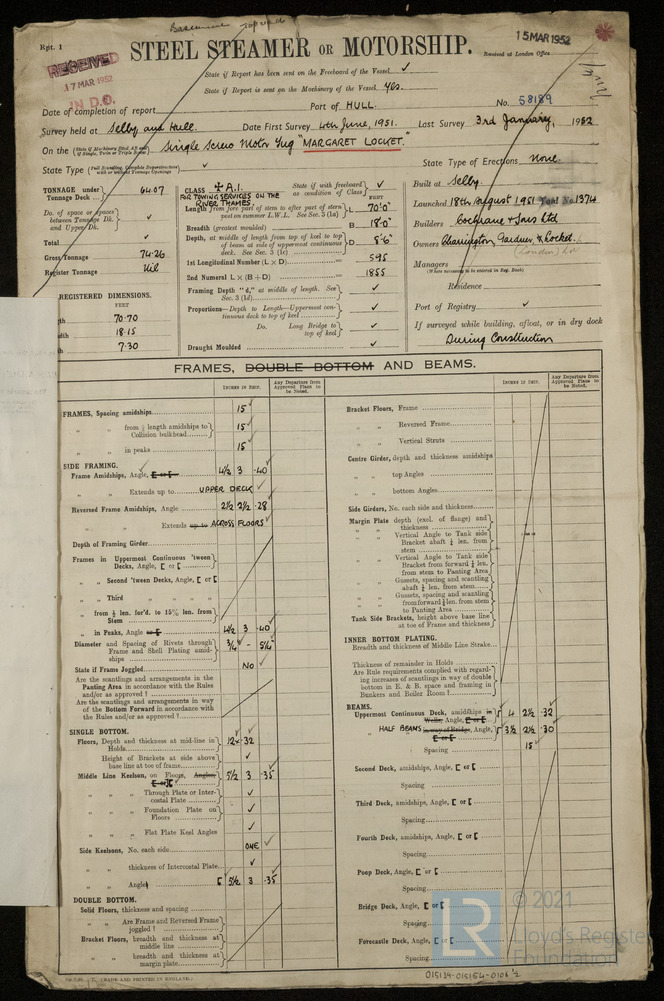 Rpt. 1
15 MAR 1952
STEEL STEAMER OR MOTORSHIP.
Received at London Office
RECEIVED
17 MAR 1952
IN D.O.
State if Report has been sent on the Freeboard of the Vessel ✓
State if Report is sent on the Machinery of the Vessel Yes.
Date of completion of report
Port of HULL.
No. 58189
Survey held at Selby and Hull. Date First Survey 4th June, 1951. Last Survey 3rd January, 1952
On the Single Screw Motor Tug "MARGARET LOCKET."
State Type ✓
State Type of Erections None.
TONNAGE under Tonnage Deck 64.07
Do. of space or spaces between Tonnage Dk. and Upper Dk. ✓
Total ✓
Gross Tonnage 74.26
Register Tonnage Nil
REGISTERED DIMENSIONS.
FEET
70.70
18.15
7.30
CLASS ✠ A.1.
FOR TOWING SERVICES ON THE RIVER THAMES
State if with freeboard as condition of Class ✓
FEET
Length from fore part of stem to after part of stern post on summer L.W.L. See Sec. 3 (1a) L 70'0"
Breadth (greatest moulded) B 18'0"
Depth, at middle of length from top of keel to top of beam at side of uppermost continuous deck. See Sec. 3 (1c) D 8'6"
1st Longitudinal Number (L × D) 595
2nd Numeral L × (B + D) 1855
Framing Depth "d," at middle of length. See Sec. 3 (1d) ✓
Proportions—Depth to Length—Uppermost continuous deck to top of keel ✓
Do. Long Bridge to top of keel ✓
Draught Moulded ✓
Built at Selby.
Launched 18th August 1951 Yard No. 1374
Builders Cochrane & Sons Ltd
Owners Charrington Gardner & Locket.
(London) Ltd
Managers
Residence
Port of Registry ✓
If surveyed while building, afloat, or in dry dock
During Construction
FRAMES, DOUBLE BOTTOM AND BEAMS.
INCHES IN SHIP.
Any Departure from Approved Plans to be Noted.
INCHES IN SHIP.
Any Departure from Approved Plans to be Noted.
FRAMES, Spacing amidships 15 ✓
" " from ⅕ length amidships to Collision bulkhead 15 ✓
" " in peaks 15 ✓
SIDE FRAMING.
Frame Amidships, Angle, [ or [ 4½ 3 .40
" " Extends up to UPPER DECK ✓
Reversed Frame Amidships, Angle 2½ 2½ .28
" " Extends up to ACROSS FLOORS ✓
Depth of Framing Girder
Frames in Uppermost Continuous 'tween Decks, Angle, [ or [
" " Second 'tween Decks, Angle, [ or [
" " Third " "
" " from ⅕ len. for'd. to 15% len. from Stem
" " in Peaks, Angle or [ 4½ 3 .40
Diameter and Spacing of Rivets through Frame and Shell Plating amidships ¾ - 5¼
State if Frame Joggled NO ✓
Are the scantlings and arrangements in the Panting Area in accordance with the Rules and/or as approved ?
Are the scantlings and arrangements in way of the Bottom Forward in accordance with the Rules and/or as approved ?
SINGLE BOTTOM.
Floors, Depth and thickness at mid-line in Holds 12 × .32
Height of Brackets at side above base line at toe of frame ✓
Middle Line Keelson, on Floors, Angles, [ or [ 5½ 3 .35
" " Through Plate or Intercostal Plate ✓
" " Foundation Plate on Floors ✓
" " Flat Plate Keel Angles ✓
Side Keelsons, No. each side ONE
" " thickness of Intercostal Plate ✓
" " Angles [ 5½ 3 .35
DOUBLE BOTTOM.
Solid Floors, thickness and spacing
" " Are Frame and Reversed Frame joggled ?
Bracket Floors, breadth and thickness at middle line
" " breadth and thickness at margin plate
Bracket Floors, Frame
" " Reversed Frame
" " Vertical Struts
Centre Girder, depth and thickness amidships
" " top Angles
" " bottom Angles
Side Girders, No. each side and thickness
Margin Plate depth (excl. of flange) and thickness
" " Vertical Angle to Tank side Bracket abaft ¼ len. from stem
" " Vertical Angle to Tank side Bracket from forward ¼ len. from stem to Panting Area
" " Gussets, spacing and scantling abaft ¼ len. from stem
" " Gussets, spacing and scantling from forward ¼ len. from stem to Panting Area
Tank Side Brackets, height above base line at toe of Frame and thickness
INNER BOTTOM PLATING.
Breadth and thickness of Middle Line Strake
Thickness of remainder in Holds
Are Rule requirements complied with regarding increases of scantlings in way of double bottom in E. & B. space and framing in Bunkers and Boiler Room ?
BEAMS.
Uppermost Continuous Deck, amidships in Wells, Angle, [ or [ 4 2½ .32
HALF BEAMS in way of Bridge, Angle, [ or [ 3½ 2½ .30
Spacing 15
Second Deck, amidships, Angle, [ or [
Spacing
Third Deck, amidships, Angle, [ or [
Spacing
Fourth Deck, amidships, Angle, [ or [
Spacing
Poop Deck, Angle, [ or [
Spacing
Bridge Deck, Angle, [ or [
Spacing
Forecastle Deck, Angle, [ or [
Spacing
(MADE AND PRINTED IN ENGLAND.)
015139-015154-0106 ½
LR
© 2021
Lloyd's Register
Foundation